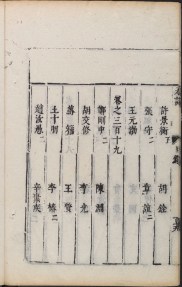 許景衡下 胡銓
張守二 章誼二
王元渤
卷之三百十九
鄭剛中二 陳淵
胡交修 李光
蘇籀 王賞
王十朋 李椿二
趙汝愚二 辛棄疾